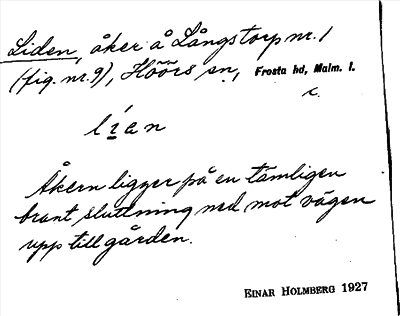 Liden, åker å Långstorp nr. 1
(fig. nr. 9), Höörs sn, Frosta hd, Malm. l.
c.
lian
Åkern ligger på en tämligen
brant sluttning ned mot vägen
upp till gården.
EINAR HOLMBERG 1927